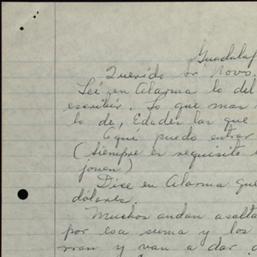 Guadalaj
Querido Sr. Novo.
Leí en Alarma lo del
escribir. Lo que mas
lo de, Edades las que
Aquí puede entrar
(siempre es requisito
joven)
Dice en Alarma que
dólares.
Muchos andan asalta
por esa suma y los
man y van a dar a